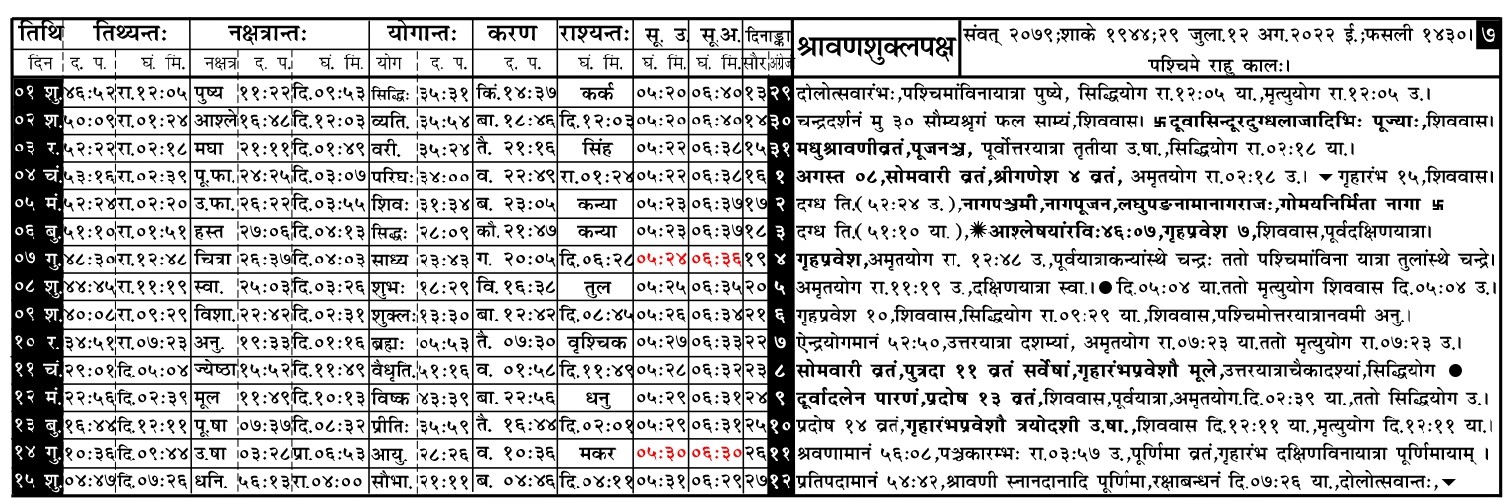 तिथि तिथ्यन्तः नक्षत्रान्तः योगान्तः करण राश्यन्तः सू. उ. सू.अ. दिनाङ्का श्रावणशुक्लपक्ष संवत् २०७९;शाके १९४४;२९ जुला.१२ अग.२०२२ ई.;फसली १४३०। ७
दिन द. प. घं. मि. नक्षत्र द. प. घं. मि. योग द. प. द. प. घं. मि. घं. मि. घं. मि. सौर अंग्रेज पश्चिमे राहु कालः।
०१ शु. ४६:५२ रा.१२:०५ पुष्य ११:२२ दि.०९:५३ सिद्धिः ३५:३१ किं.१४:३७ कर्क ०५:२० ०६:४० १३ २९ दोलोत्सवारंभः,पश्चिमांविनायात्रा पुष्ये, सिद्धियोग रा.१२:०५ या.,मृत्युयोग रा.१२:०५ उ.।
०२ श. ५०:०९ रा.०१:२४ आश्ले १६:४८ दि.१२:०३ व्यति. ३५:५४ बा. १८:४६ दि.१२:०३ ०५:२० ०६:४० १४ ३० चन्द्रदर्शनं मु ३० सौम्यश्रृगं फल साम्यं,शिववास। 卐 दूवासिन्दूरदुग्धलाजादिभिः पूज्याः,शिववास।
०३ र. ५२:२२ रा.०२:१८ मघा २१:११ दि.०१:४९ वरी. ३५:२४ तै. २१:१६ सिंह ०५:२२ ०६:३८ १५ ३१ मधुश्रावणीव्रतं,पूजनञ्च, पूर्वोत्तरयात्रा तृतीया उ.षा.,सिद्धियोग रा.०२:१८ या.।
०४ चं. ५३:१६ रा.०२:३९ पू.फा. २४:२५ दि.०३:०७ परिघः ३४:०० व. २२:४९ रा.०१:२४ ०५:२२ ०६:३८ १६ १ अगस्त ०८,सोमवारी व्रतं,श्रीगणेश ४ व्रतं, अमृतयोग रा.०२:१८ उ.। ▼ गृहारंभ १५,शिववास।
०५ मं. ५२:२४ रा.०२:२० उ.फा. २६:२२ दि.०३:५५ शिवः ३१:३४ ब. २३:०५ कन्या ०५:२३ ०६:३७ १७ २ दग्ध ति.(५२:२४ उ.),नागपञ्चमी,नागपूजन,लघुपङनामानागराजः,गोमयनिर्मिता नागा 卐
०६ बु. ५१:१० रा.०१:५१ हस्त २७:०६ दि.०४:१३ सिद्धः २८:०९ कौ.२१:४७ कन्या ०५:२३ ०६:३७ १८ ३ दग्ध ति.(५१:१० या.),✷आश्लेषयांरविः४६:०७,गृहप्रवेश ७,शिववास,पूर्वदक्षिणयात्रा।
०७ गु. ४८:३० रा.१२:४८ चित्रा २६:३७ दि.०४:०३ साध्य २३:४३ ग. २०:०५ दि.०६:२८ ०५:२४ ०६:३६ १९ ४ गृहप्रवेश,अमृतयोग रा. १२:४८ उ.,पूर्वयात्राकन्यांस्थे चन्द्रः ततो पश्चिमांविना यात्रा तुलांस्थे चन्द्रे।
०८ शु. ४४:४५ रा.११:१९ स्वा. २५:०३ दि.०३:२६ शुभः १८:२९ वि.१६:३८ तुल ०५:२५ ०६:३५ २० ५ अमृतयोग रा.११:१९ उ.,दक्षिणयात्रा स्वा.। ● दि.०५:०४ या.ततो मृत्युयोग शिववास दि.०५:०४ उ.।
०९ श. ४०:०८ रा.०९:२९ विशा. २२:४२ दि.०२:३१ शुक्लः १३:३० बा. १२:४२ दि.०८:४५ ०५:२६ ०६:३४ २१ ६ गृहप्रवेश १०,शिववास,सिद्धियोग रा.०९:२९ या.,शिववास,पश्चिमोत्तरयात्रानवमी अनु.।
१० र. ३४:५१ रा.०७:२३ अनु. १९:३३ दि.०१:१६ ब्रह्मः ०५:५३ तै. ०७:३० वृश्चिक ०५:२७ ०६:३३ २२ ७ ऐन्द्रयोगमानं ५२:५०,उत्तरयात्रा दशम्यां, अमृतयोग रा.०७:२३ या.ततो मृत्युयोग रा.०७:२३ उ.।
११ चं. २९:०१ दि.०५:०४ ज्येष्ठा १५:५२ दि.११:४९ वैधृति. ५१:१६ व. ०१:५८ दि.११:४९ ०५:२८ ०६:३२ २३ ८ सोमवारी व्रतं,पुत्रदा ११ व्रतं सर्वेषां,गृहारंभप्रवेशौ मूले,उत्तरयात्राचैकादश्यां,सिद्धियोग ●
१२ मं. २२:५६ दि.०२:३९ मूल ११:४९ दि.१०:१३ विष्क ४३:३९ बा.२२:५६ धनु ०५:२९ ०६:३१ २४ ९ दूर्वादलेन पारणं,प्रदोष १३ व्रतं,शिववास,पूर्वयात्रा,अमृतयोग.दि.०२:३९ या.,ततो सिद्धियोग उ.।
१३ बु. १६:४४ दि.१२:११ पू.षा ०७:३७ दि.०८:३२ प्रीतिः ३५:५९ तै. १६:४४ दि.०२:०१ ०५:२९ ०६:३१ २५ १० प्रदोष १४ व्रतं,गृहारंभप्रवेशौ त्रयोदशी उ.षा.,शिववास दि.१२:११ या.,मृत्युयोग दि.१२:११ या.।
१४ गु. १०:३६ दि.०९:४४ उ.षा ०३:२८ प्रा.०६:५३ आयु. २८:२६ व. १०:३६ मकर ०५:३० ०६:३० २६ ११ श्रवणामानं ५६:०८,पञ्चकारम्भः रा.०३:५७ उ.,पूर्णिमा व्रतं,गृहारंभ दक्षिणविनायात्रा पूर्णिमायाम्।
१५ शु. ०४:४७ दि.०७:२६ धनि. ५६:१३ रा.०४:०० सौभा. २१:११ ब. ०४:४६ दि.०४:११ ०५:३१ ०६:२९ २७ १२ प्रतिपदामानं ५४:४२,श्रावणी स्नानदानादि पूर्णिमा,रक्षाबन्धनं दि.०७:२६ या.,दोलोत्सवान्तः,▼